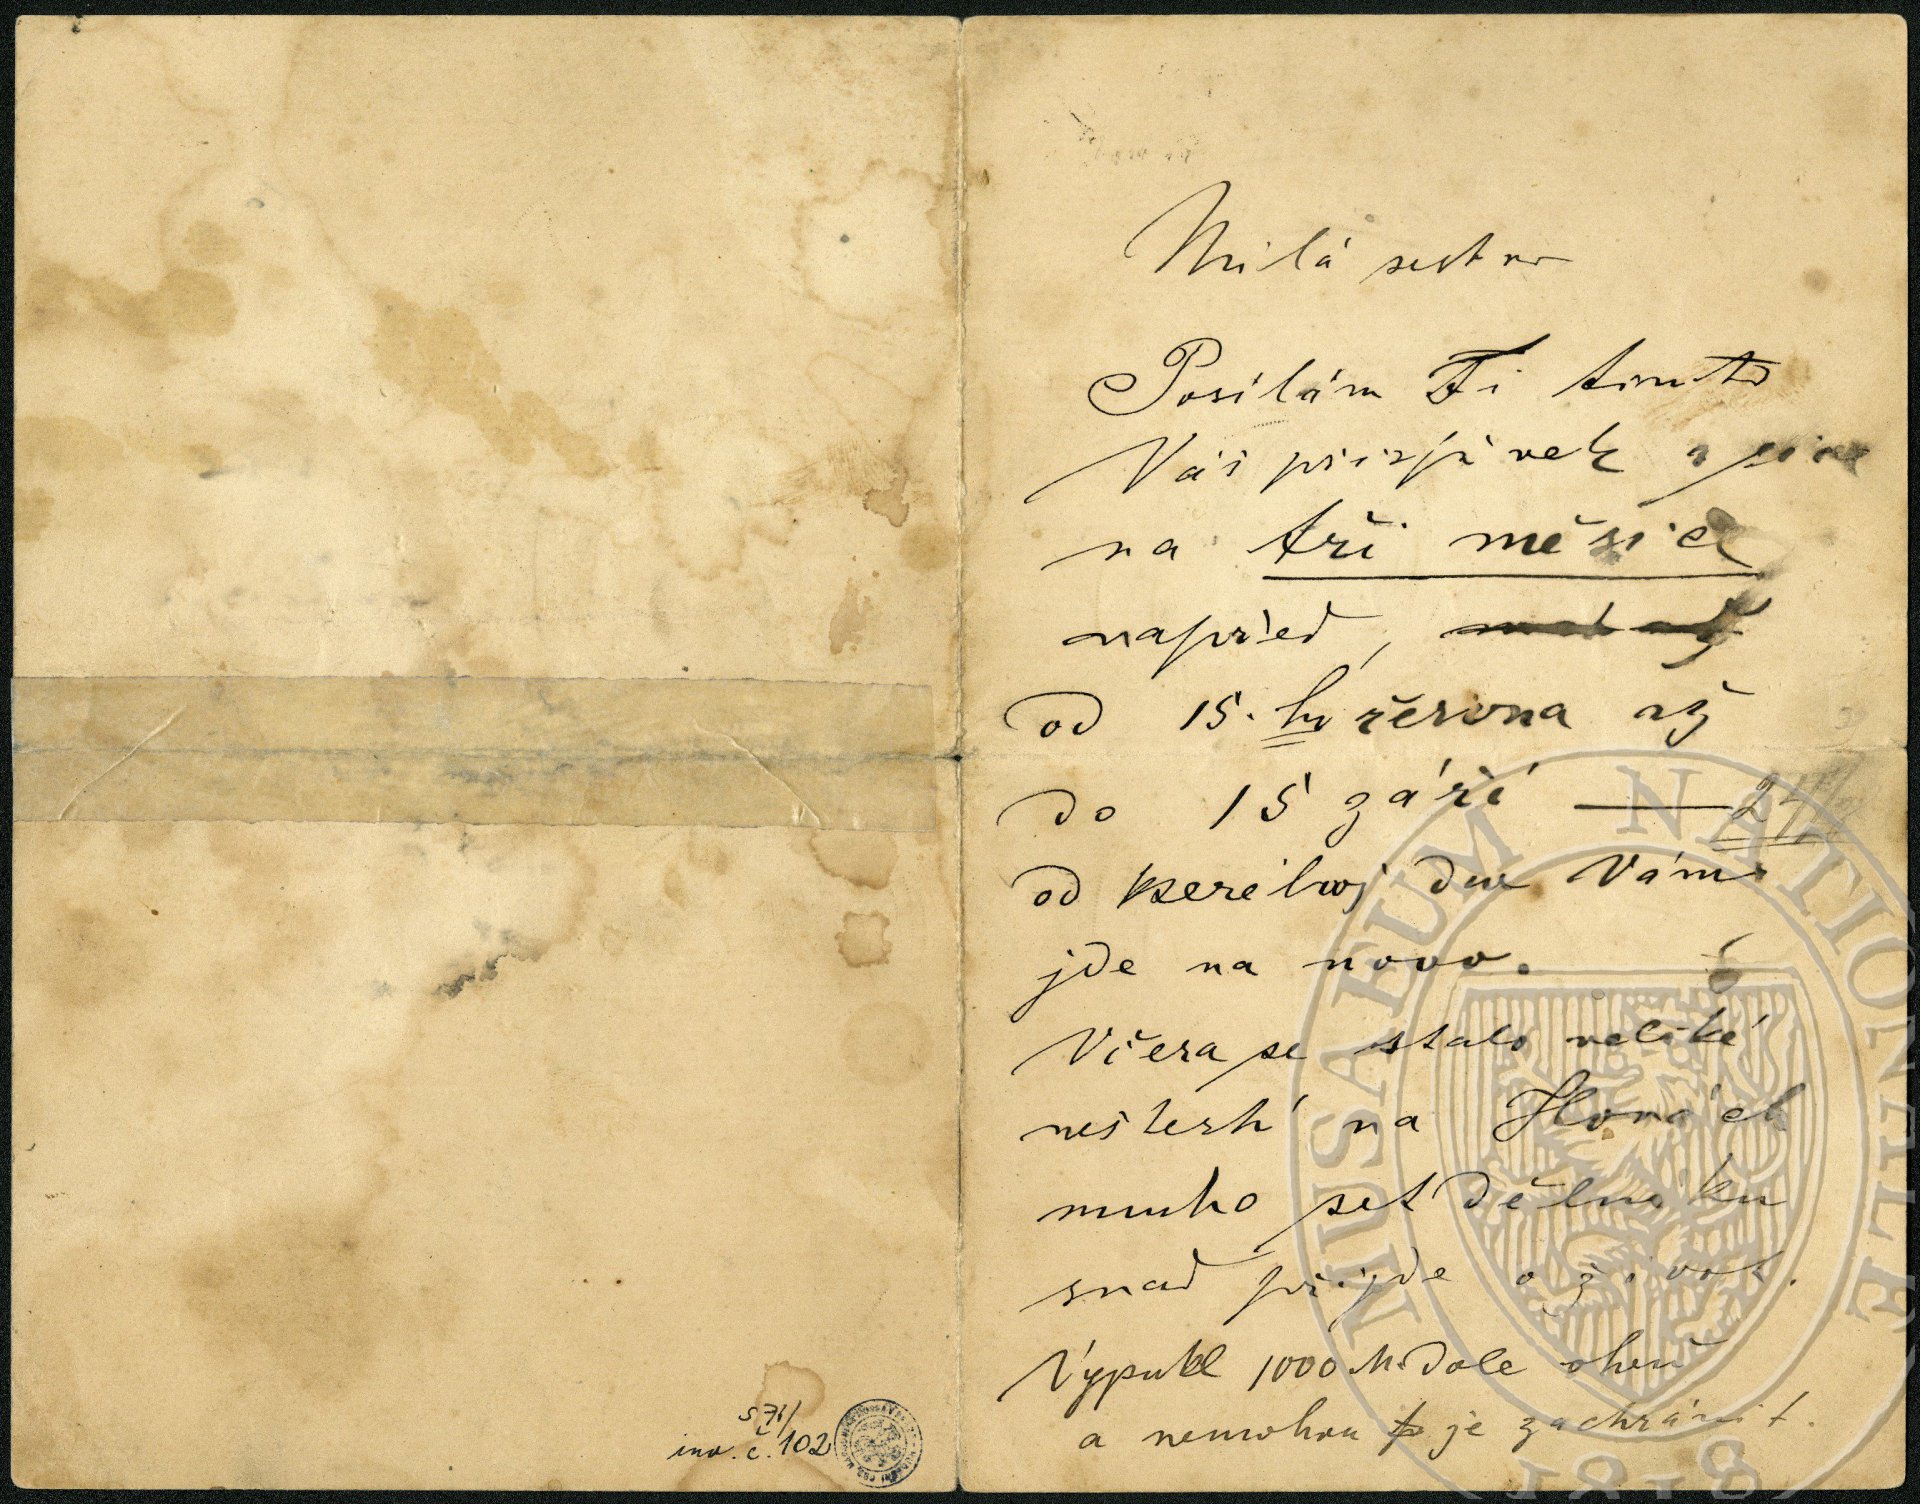 Milá sestro
Posílám Ti tímto
Váš příspěvek
na tři měsíce
napřed,
od 15. června až
do 15 září — 24
od kteréhož dne Vám
jde na novo.
Včera se stalo veliké
neštestí na Horách
mnoho set dělníku
snad přijde o život.
Vypukl 1000 M. dole oheň
a nemohou je zachránit.
S 71/
inv. č. 102
MUSAEUM NATIONALE
1818